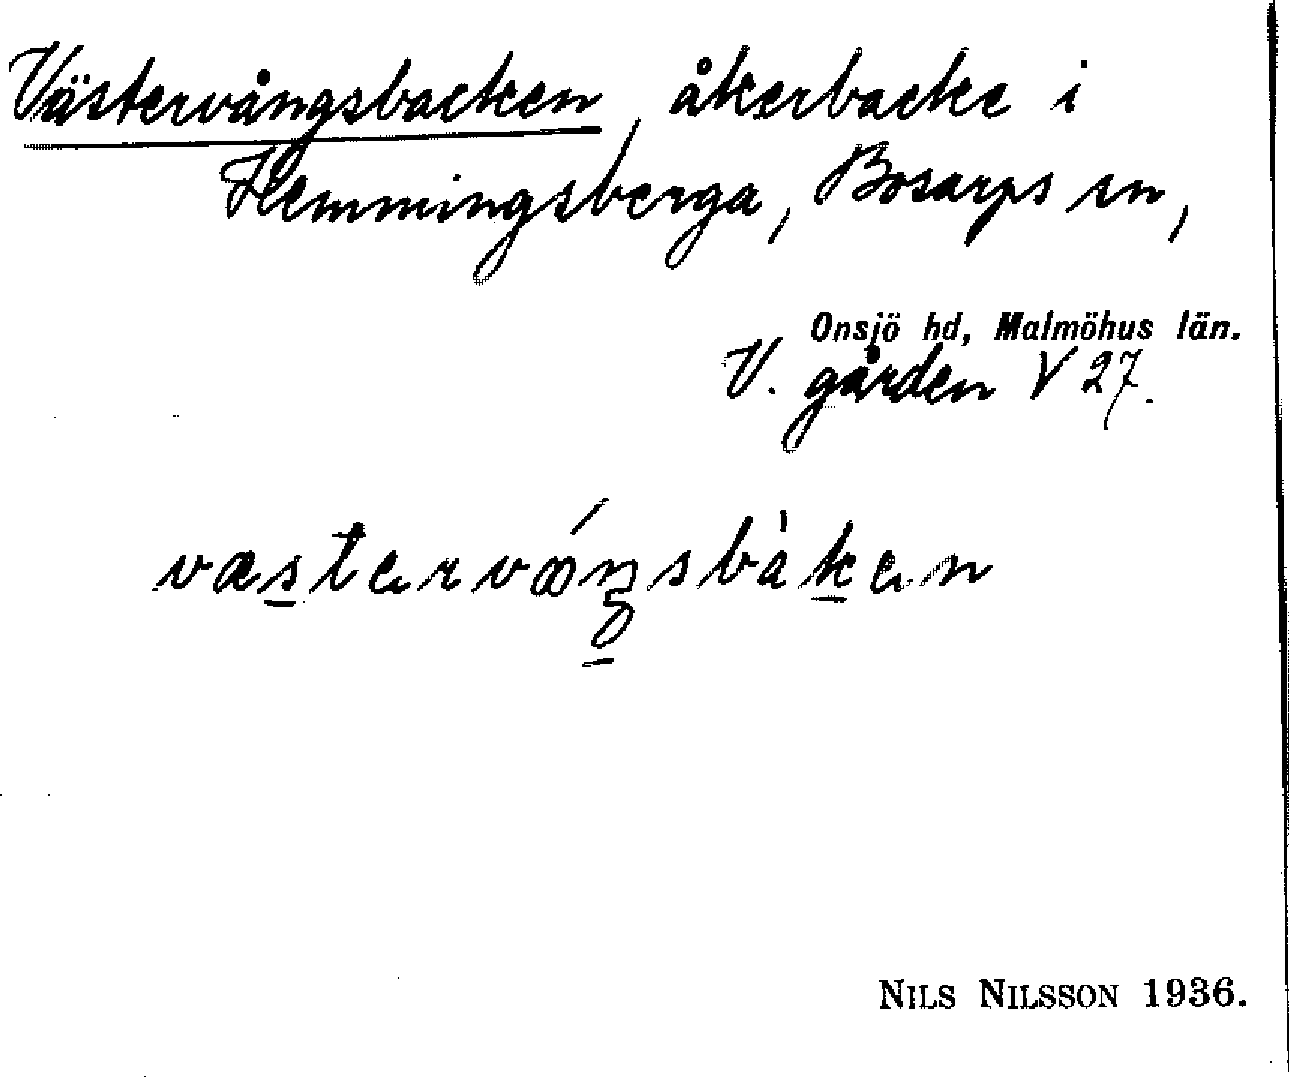 Västervångsbacken, åkerbacke i
Hemmingsberga, Bosarps sn,
Onsjö hd, Malmöhus län.
V. gården V 27.
væstərvǻŋsbàkən
NILS NILSSON 1936.